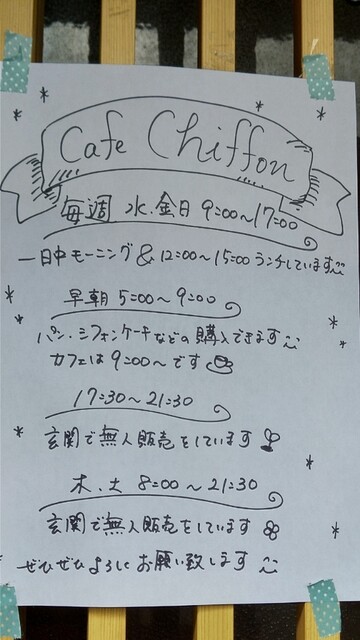 Cafe Chiffon
毎週 水.金日 9:00〜17:00
一日中モーニング & 12:00〜15:00 ランチしています
早朝 5:00〜9:00
パン・シフォンケーキなどの購入できます
カフェは 9:00〜です
17:30〜21:30
玄関で無人販売をしています
木.土 8:00〜21:30
玄関で無人販売をしています
ぜひぜひよろしくお願い致します